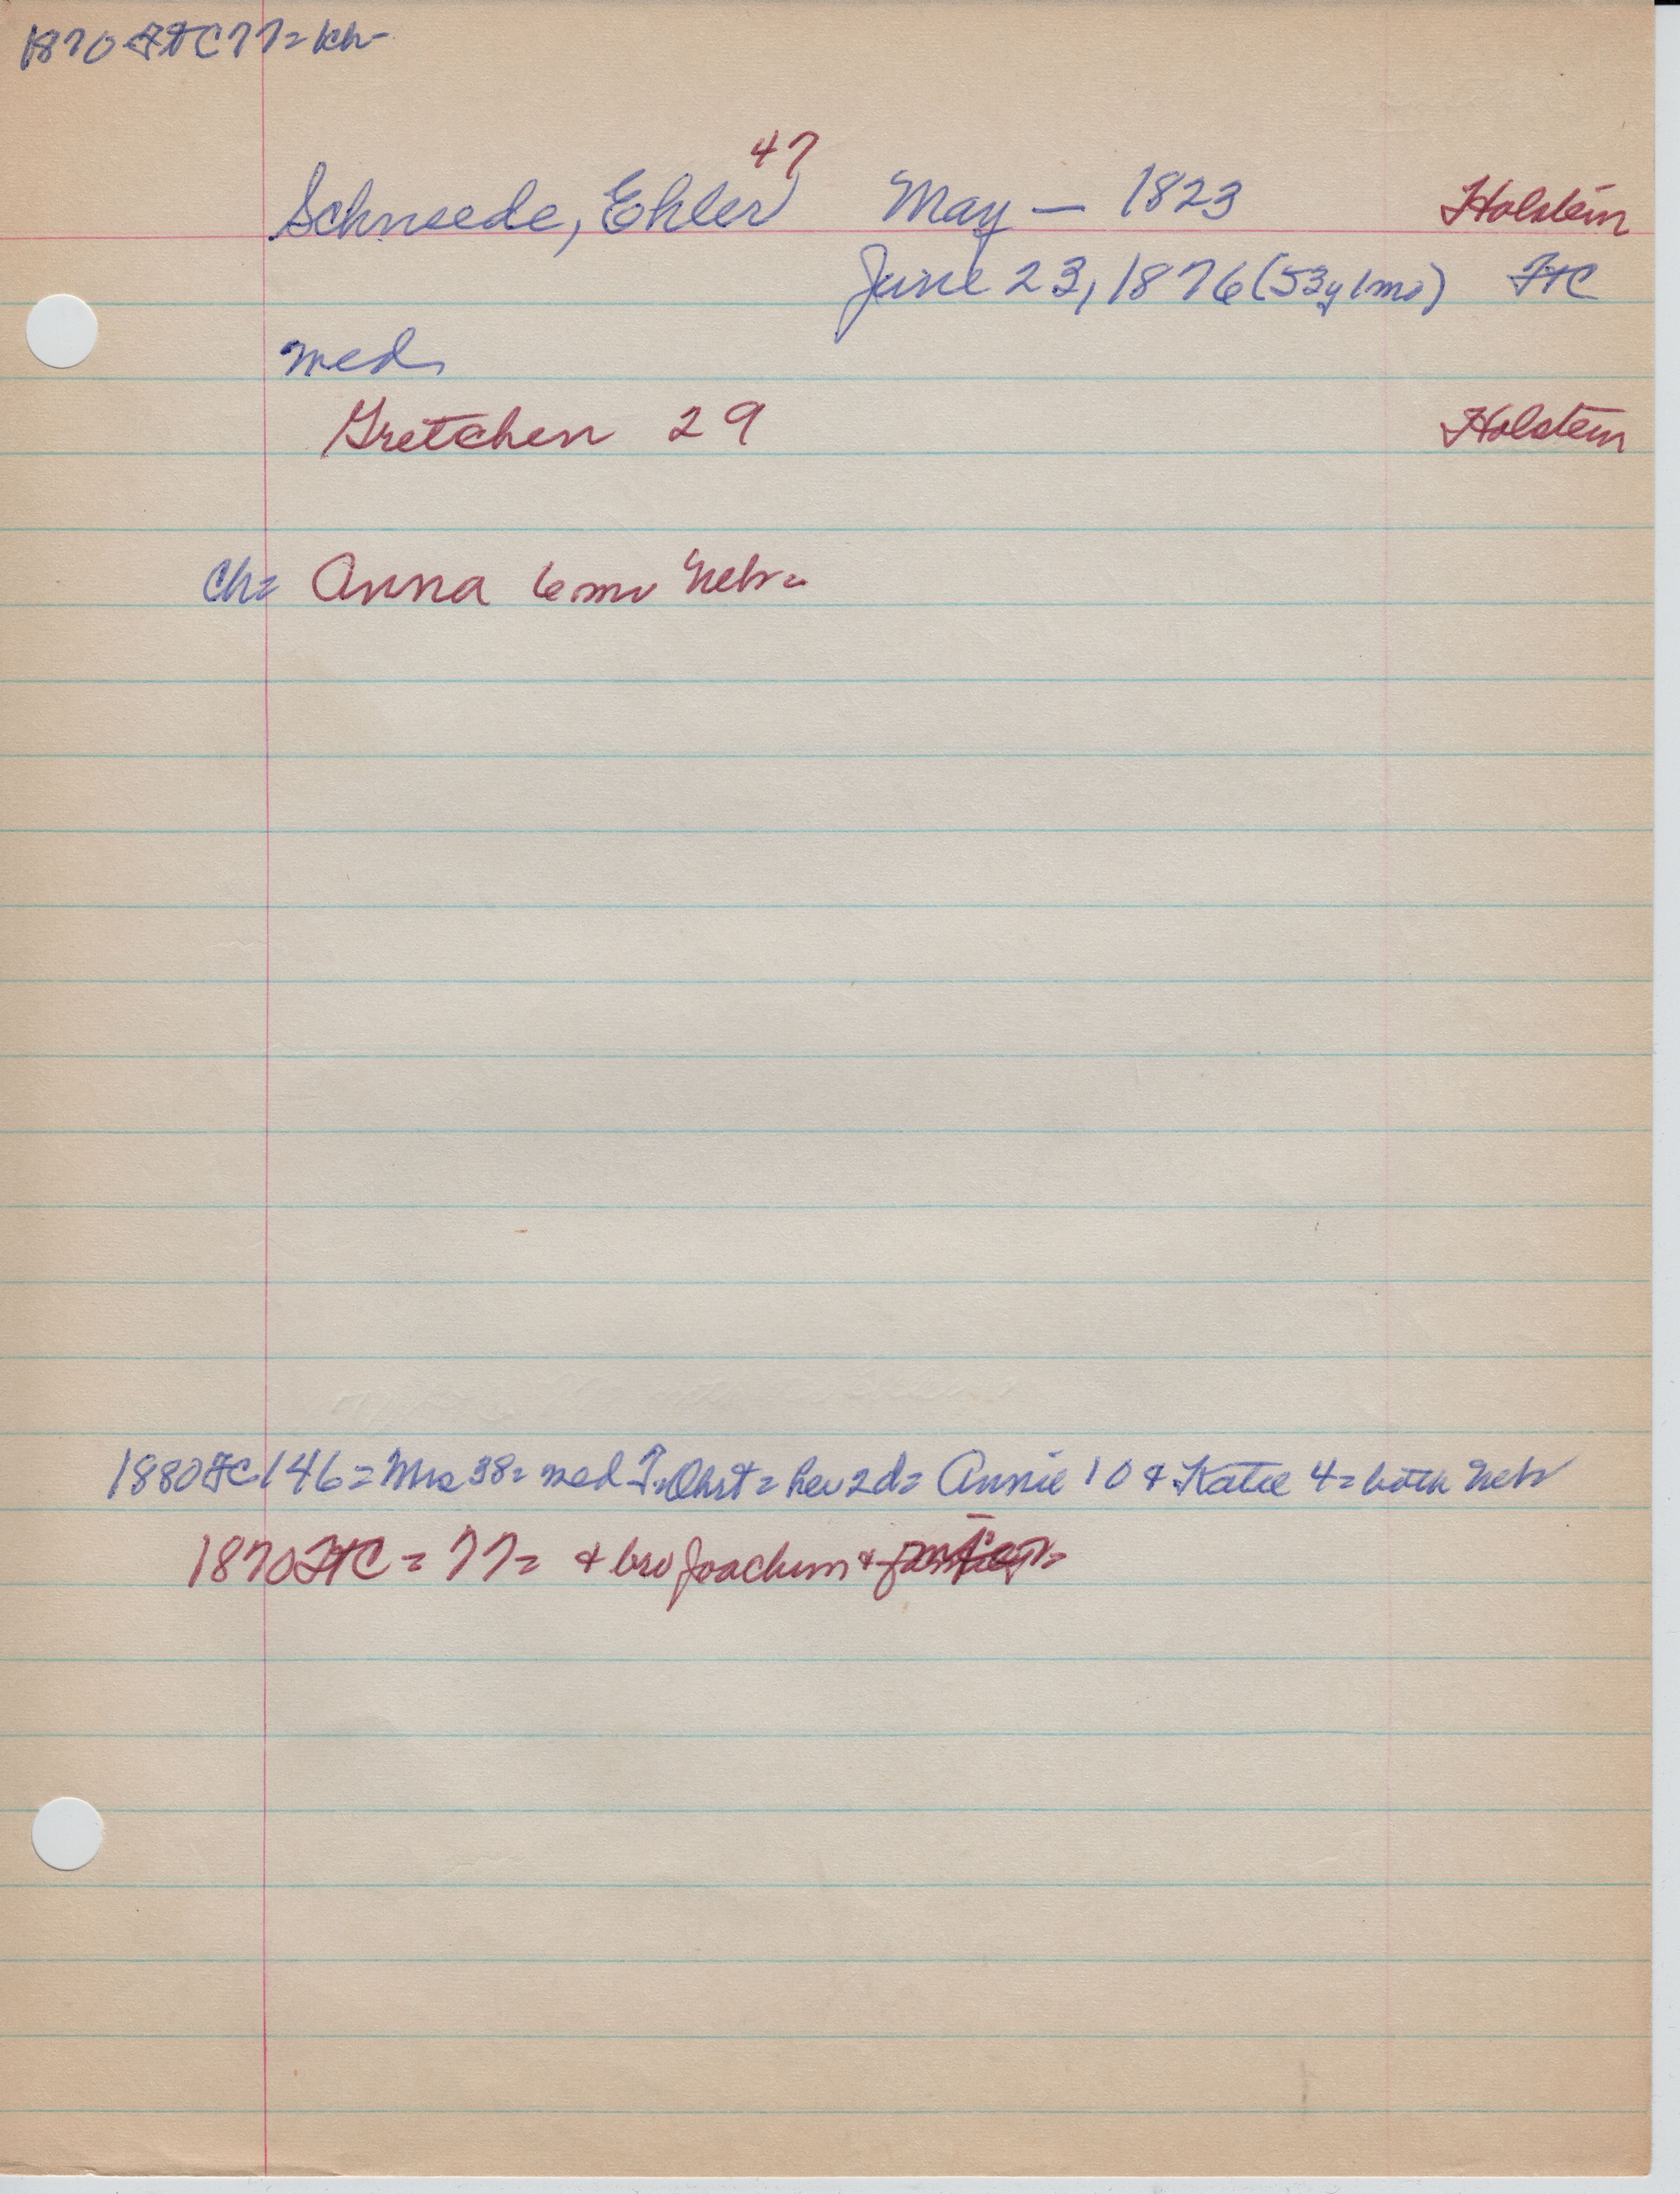 1870 FtC 77 = kh-
47
Schneede, Ehler May — 1823 Holstein
June 23, 1876 (53y 1mo) FtC
med
Gretchen 29 Holstein
Ch= Anna 6 mo Nebr=
1880 FC 146 = Mrs 38 = med J. Ohrt = hev 2d = Annie 10 & Katie 4 = both Nebr
1870 FtC = 77 = & bro Joachim &